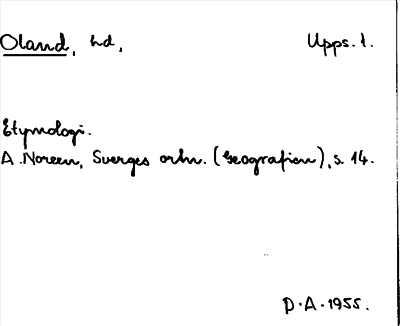 Oland, hd, Upps. l.
Etymologi.
A. Noreen, Sverges ortn. (Geografien), s. 14.
D. A. 1955.